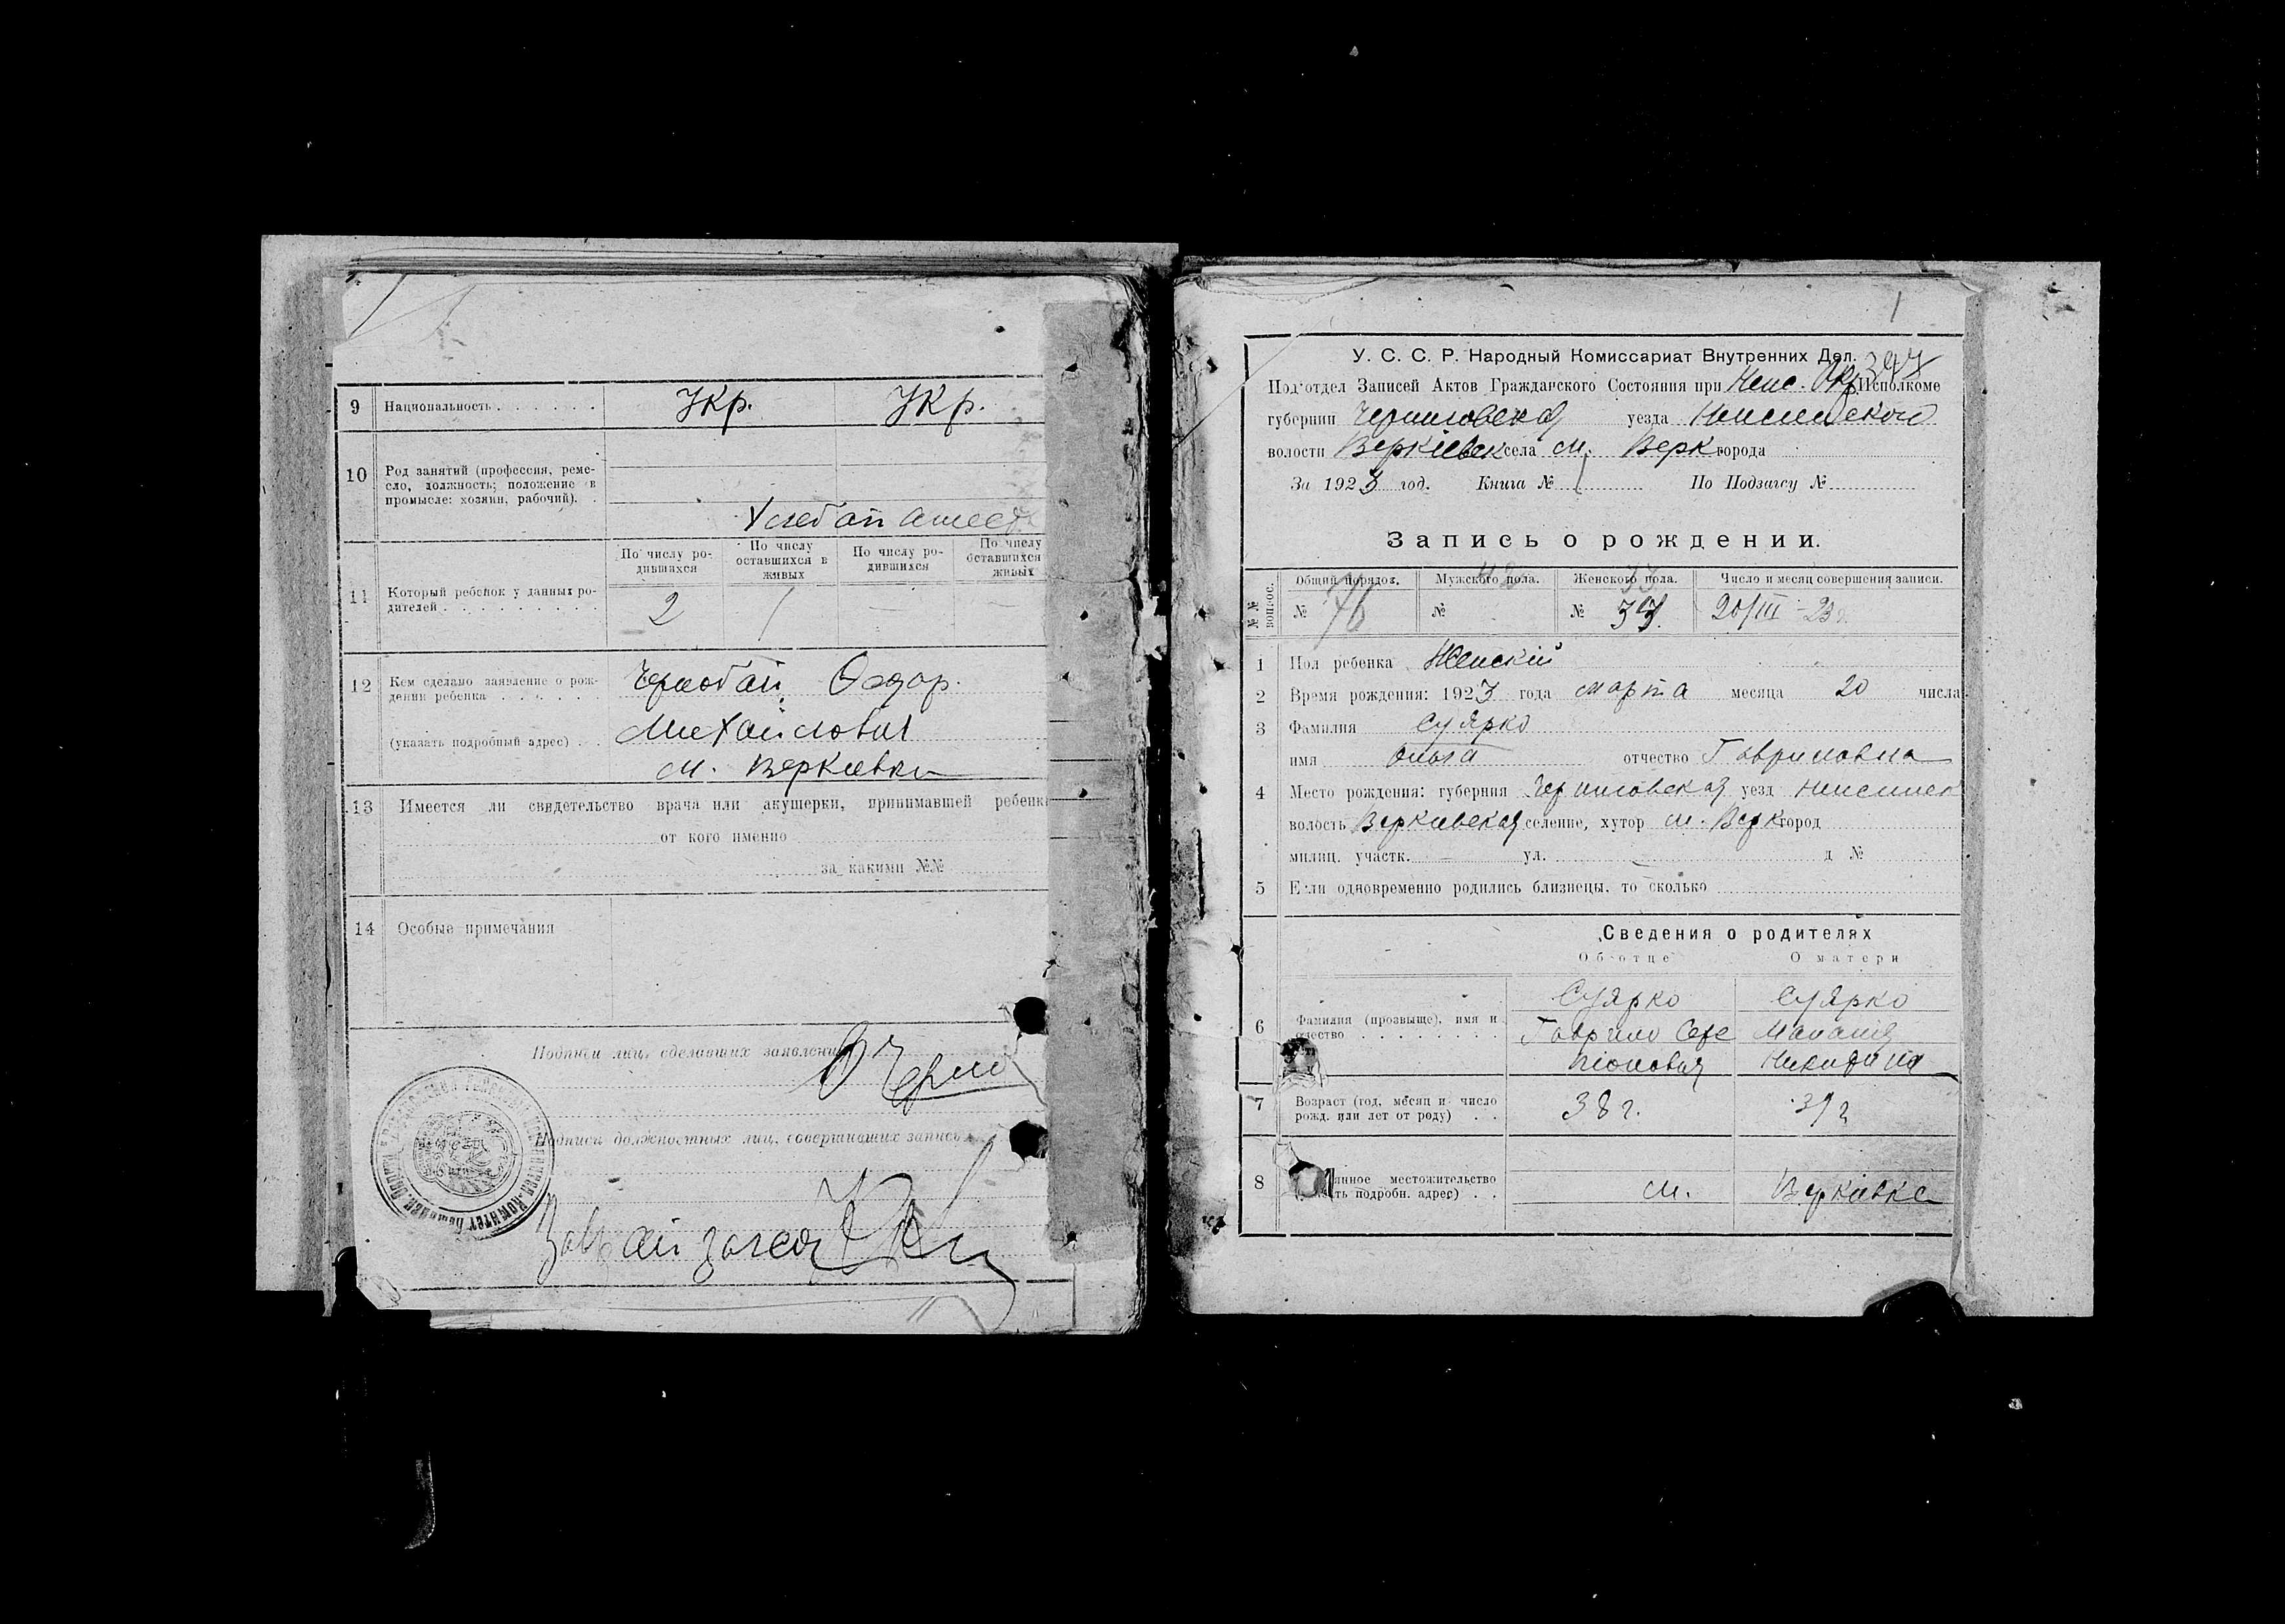 9 Национальность Укр. Укр.
10 Род занятий (профессия, реме-
сло, должность; положение в
промысле: хозяин, рабочий).
11 Который ребенок у данных ро-
дителей
По числу ро-
дившихся
По числу
оставшихся в
живых
По числу ро-
дившихся
По числу
оставшихся
живых
2 1 — —
12 Кем сделано заявление о рож-
дении ребенка Федор.
(указать подробный адрес) Михайлович
м. Веркиевки
13 Имеется ли свидетельство врача или акушерки, принимавшей ребенк
от кого именно
за какими №№
14 Особые примечания
Подписи лиц, сделавших заявление
Подписи должностных лиц, совершивших запись
1
У. С. С. Р. Народный Комиссариат Внутренних Дел.
Под'отдел Записей Актов Гражданского Состояния при Исполкоме
губернии Черниговской уезда
волости Веркіевск села м. Верк города
За 1923 год. Книга № 1 По Подзагсу №
Запись о рождении.
№№ вопрос. Общий порядок. Мужского пола. Женского пола. Число и месяц совершения записи.
№ 76 № № 37. 20/III - 23 г.
1 Пол ребенка Женскій
2 Время рождения: 1923 года марта месяца 20 числа
3 Фамилия Суярко
имя Ольга отчество Гавриловна
4 Место рождения: губерния Черниговская уезд
волость Веркиевская селение, хутор м. Верк город
милиц. участк. — ул. — д №
5 Если одновременно родились близнецы, то сколько
Сведения о родителях
Об отце О матери
6 Фамилия (прозвыще), имя и
отчество
Суярко Суярко
Гаврило Маланія
7 Возраст (год, месяц и число
рожд. или лет от роду)
38 г.
8 янное местожительство
ть подробн. адрес)
м. Веркіевка